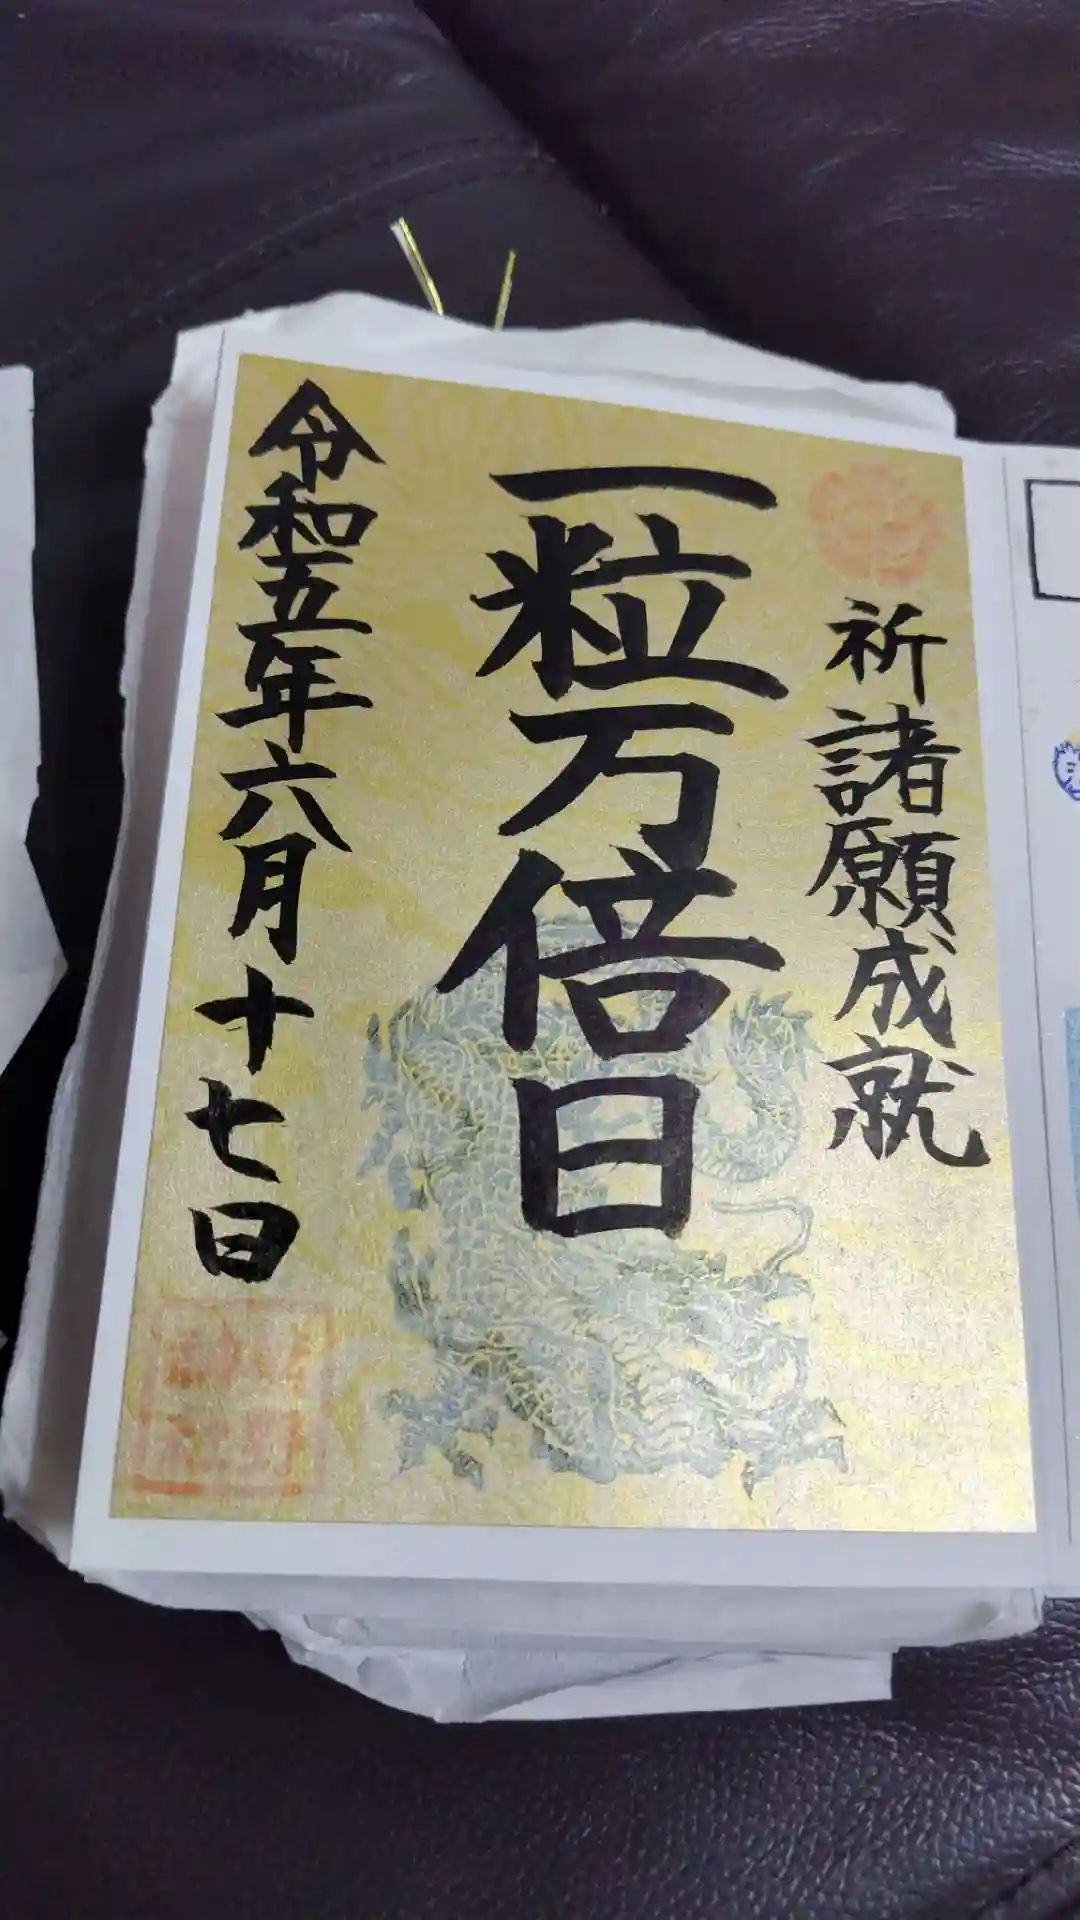 祈諸願成就
一粒万倍日
令和五年六月十七日